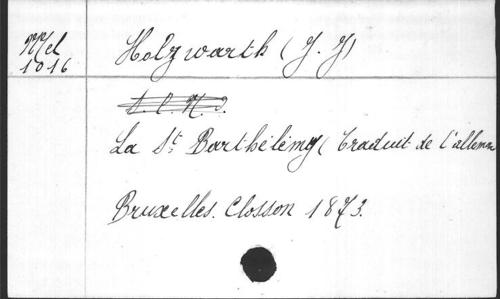 Mel
1016
Holzwarth (J. J)
La St. Barthélémy (traduit de l'alleman
Bruxelles. Closson 1873.